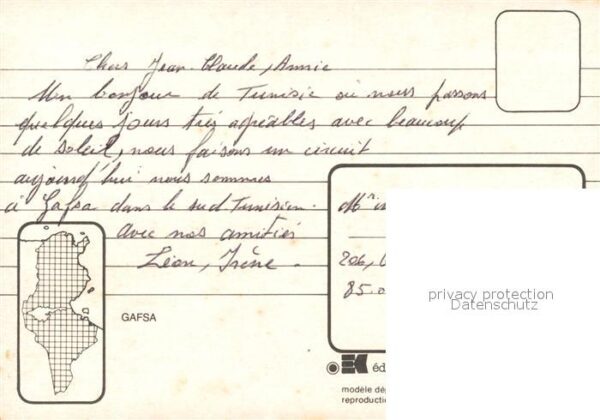 Chers Jean-Claude, Annie
Un bonjour de Tunisie où nous passons
quelques jours très agréables avec beaucoup
de soleil, nous faisons un circuit
aujourd'hui nous sommes
à Gafsa dans le sud Tunisien.
avec nos amitiés
Léon, Irène.
GAFSA
Mr
206,
85.
privacy protection
Datenschutz
EK éd
modèle dé
reproductio